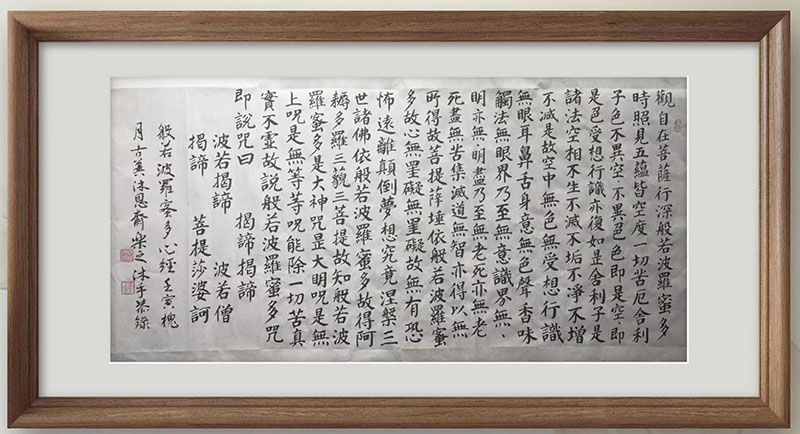 觀自在菩薩行深般若波羅蜜多
時照見五蘊皆空度一切苦厄舍利
子色不異空、不異色色即是空、即
是色受想行識亦復如是舍利子是
諸法空相不生不滅不垢不淨不增
不減是故空中無色無受想行識
無眼耳鼻舌身意無色聲香味
觸法無眼界乃至無意識界無、
明亦無、明盡乃至無老死亦無老
死盡無苦集滅道無智亦得以無
所得故菩提薩埵依般若波羅蜜
多故心無罣礙無罣礙故無有恐
怖遠離顛倒夢想究竟涅槃三
世諸佛依般若波羅蜜多故得阿
耨多羅三藐三菩提故知般若波
羅蜜多是大神咒是大明咒是無
上呪是無等等呪能除一切苦真
實不虛故說般若波羅蜜多咒
即說咒曰 揭諦揭諦
波若揭諦 波若僧
揭諦 菩提莎婆訶
般若波羅蜜多心經 壬寅槐
月古美沐恩齋樂之沐手恭錄